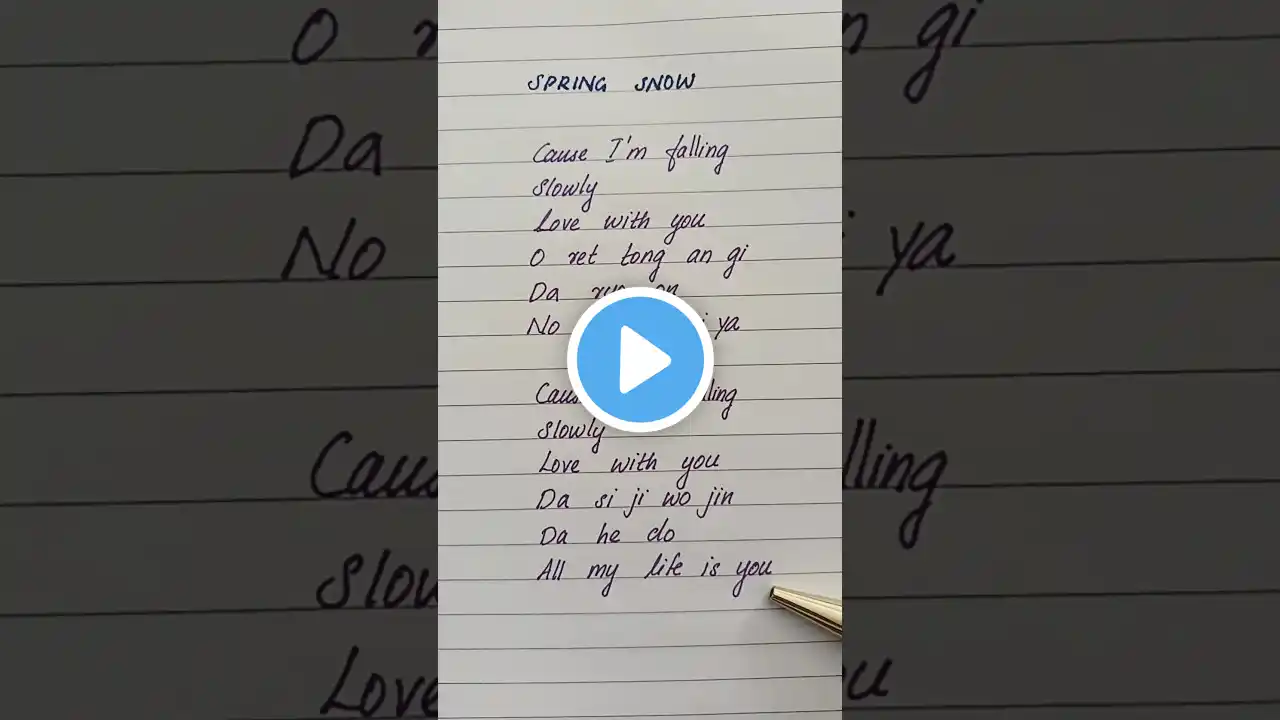 SPRING SNOW
Cause I'm falling
Slowly
Love with you
O ret tong an gi
Da
No ya
Cause lling
Slowly
Love with you
Da si ji wo jin
Da he do
All my life is you